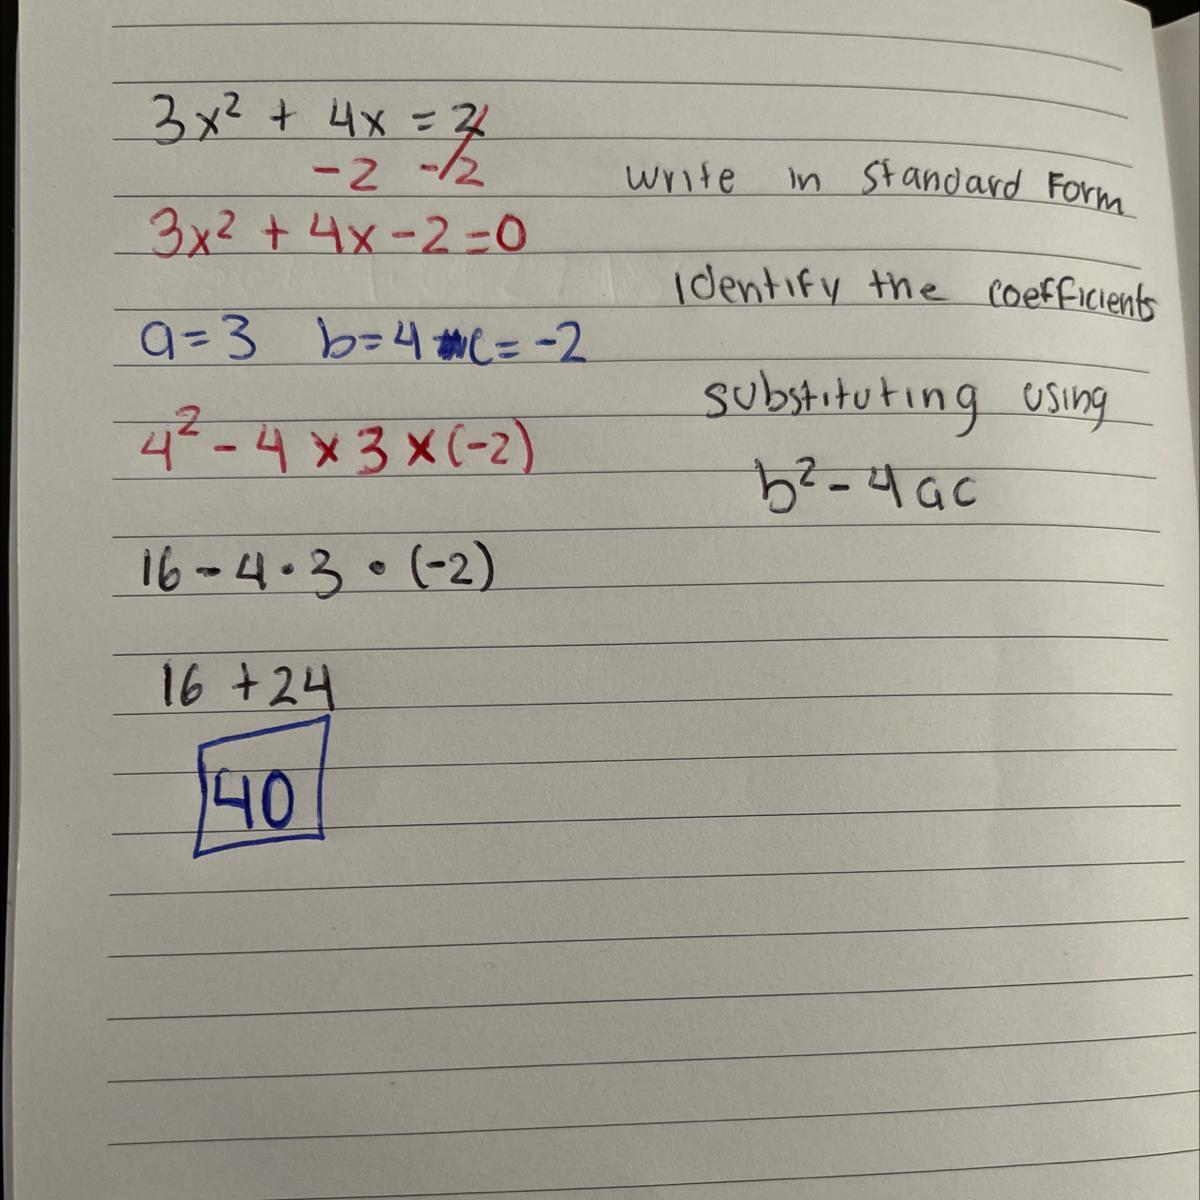 3x² + 4x = 2
-2 -2
write in standard Form
3x² + 4x - 2 = 0
Identify the coefficients
a = 3 b = 4 c = -2
substituting using
4² - 4 × 3 × (-2)
b² - 4ac
16 - 4 · 3 · (-2)
16 + 24
40